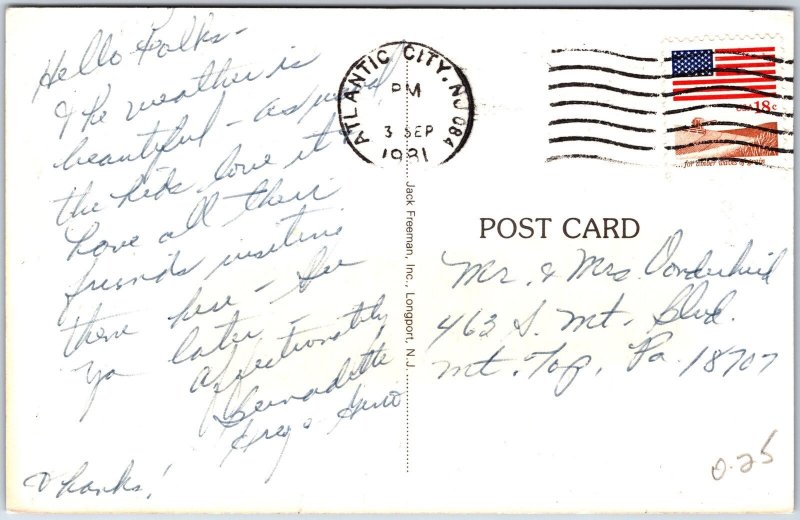 Hello Folks -
The weather is
beautiful - as usual,
the kids love it &
have all their
friends visiting
them here - See
ya later -
Affectionately
Bernadette
Greg &
Thanks!
ATLANTIC CITY, NJ 084
PM
3 SEP
1981
USA 18c
for amber waves of grain
Jack Freeman, Inc., Longport, N.J.
POST CARD
Mr. & Mrs Vonderheid
463 S. Mt. Blvd.
Mt. Top, Pa. 18707
0.25